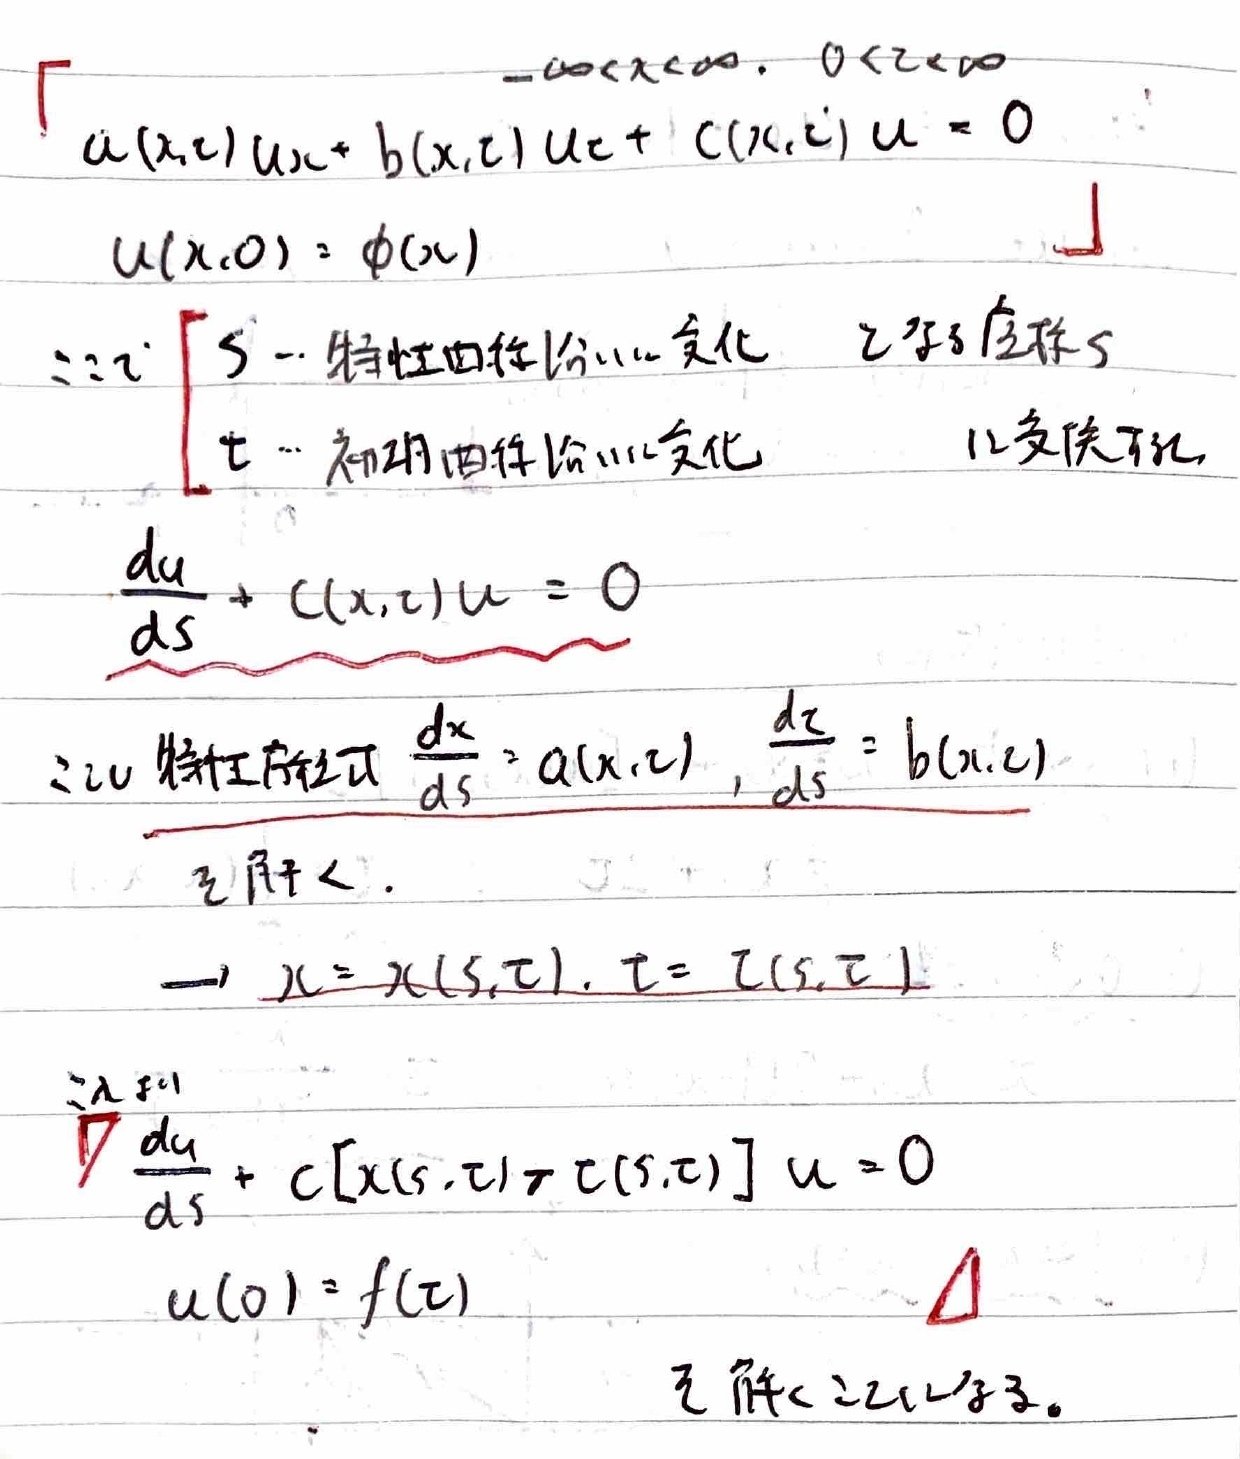 -∞<x<∞. 0<t<∞
a(x,t)ux + b(x,t)ut + c(x,t)u = 0
u(x,0) = φ(x)
ここで s … 特性曲線沿いに変化 となる座標s
τ … 初期曲線沿いに変化 に変換すれば
du/ds + c(x,t)u = 0
ここで 特性方程式 dx/ds = a(x,t), dt/ds = b(x,t)
を解く.
→ x = x(s,τ). t = t(s,τ)
これより
du/ds + c[x(s,τ), t(s,τ)] u = 0
u(0) = f(τ)
を解くことになる。